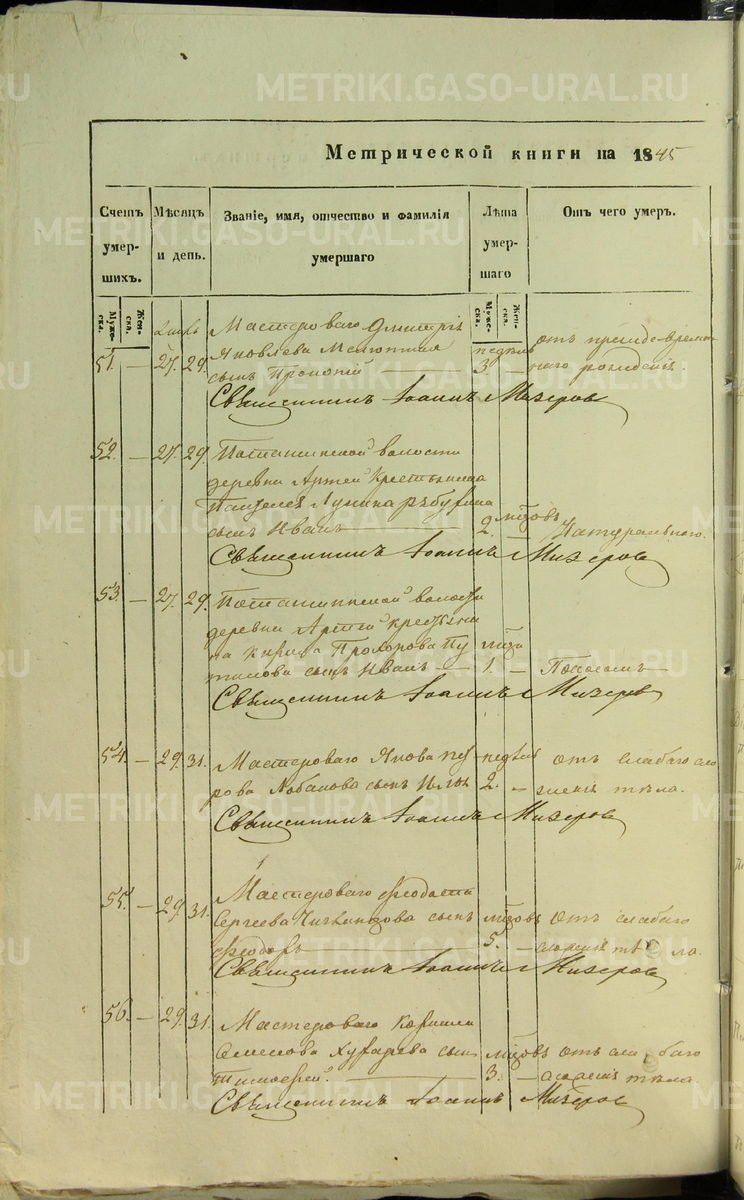 METRIKI.GASO-URAL.RU
Метрической книги на 1845
Счетъ умершихъ.
Мѣсяцъ и день.
Званіе, имя, отчество и фамилія умершаго
Лѣта умершаго
Отъ чего умеръ.
Мужеска.
Женска.
Мужеска.
Женска.
Мастероваго Дмитрія
51. — 27. 29. Яковлева сынъ Прокопій — недѣль 3. — отъ преждевременнаго рожденія.
Священникъ Іоаннъ Мизеровъ
52. — 27. 29. Поташинской волости
деревни Артей Крестьянина
сынъ Иванъ — 2. — Натурального.
Священникъ Іоаннъ Мизеровъ
53. — 27. 29. Поташинской волости
деревни Артей крестьяни
на Прохорова Пу
тилова сынъ Иванъ — 1. — Поносомъ
Священникъ Іоаннъ Мизеровъ
54. — 29. 31. Мастероваго Якова Пет- недѣль отъ слабаго сло
рова Лобанова сынъ Илья 2. — женія тѣла.
Священникъ Іоаннъ Мизеровъ
55. — 29. 31. Мастероваго
Сергеева сынъ отъ слабаго
Феодоръ — 5. — сложенія тѣла.
Священникъ Іоаннъ Мизеровъ
56. — 29. 31. Мастероваго
Семенова сынъ отъ слабаго
Тимофей. — 3. — сложенія тѣла.
Священникъ Іоаннъ Мизеровъ